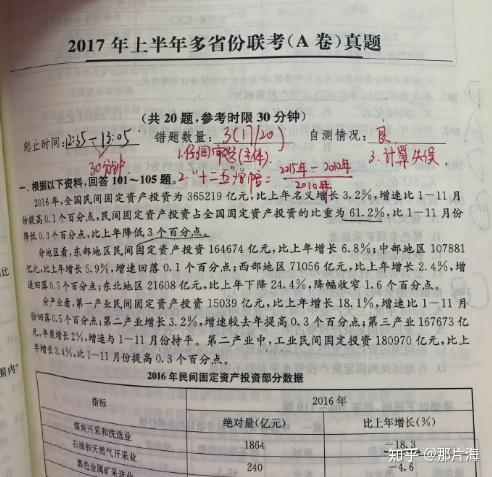 2017年上半年多省份联考(A卷)真题
(共20题,参考时限30分钟)
起止时间:12:35—13:05 错题数量:3(17/20) 自测情况:良
30分钟 1.仔细审题(主体) 3.计算失误
2."十二五"增幅=2015年-2010年/2010年
一、根据以下资料,回答101~105题。
2016年,全国民间固定资产投资为365219亿元,比上年名义增长3.2%,增速比1—11月
份提高0.1个百分点,民间固定资产投资占全国固定资产投资的比重为61.2%,比1—11月份
降低0.3个百分点,比上年降低3个百分点。
分地区看,东部地区民间固定资产投资164674亿元,比上年增长6.8%;中部地区107881
亿元,比上年增长5.9%,增速回落0.1个百分点;西部地区71056亿元,比上年增长2.4%,增
速回落0.5个百分点;东北地区21608亿元,比上年下降24.4%,降幅收窄1.6个百分点。
分产业看,第一产业民间固定资产投资15039亿元,比上年增长18.1%,增速比1—11月
份回落0.5个百分点;第二产业增长3.2%,增速较去年提高0.3个百分点;第三产业167673亿
元,年度增长2%,增速与1—11月份持平。第二产业中,工业民间固定投资180970亿元,比上
年增长3.4%,比1—11月份提高0.3个百分点。
2016年民间固定资产投资部分数据
指标 2016年
绝对量(亿元) 比上年增长(%)
煤炭开采和洗选业 1864 -18.3
石油和天然气开采业 240 -4.6
黑色金属矿采选业
知乎 @那片海